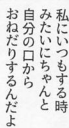 私にいつもする時
みたいにちゃんと
自分の口から
おねだりするんだよ